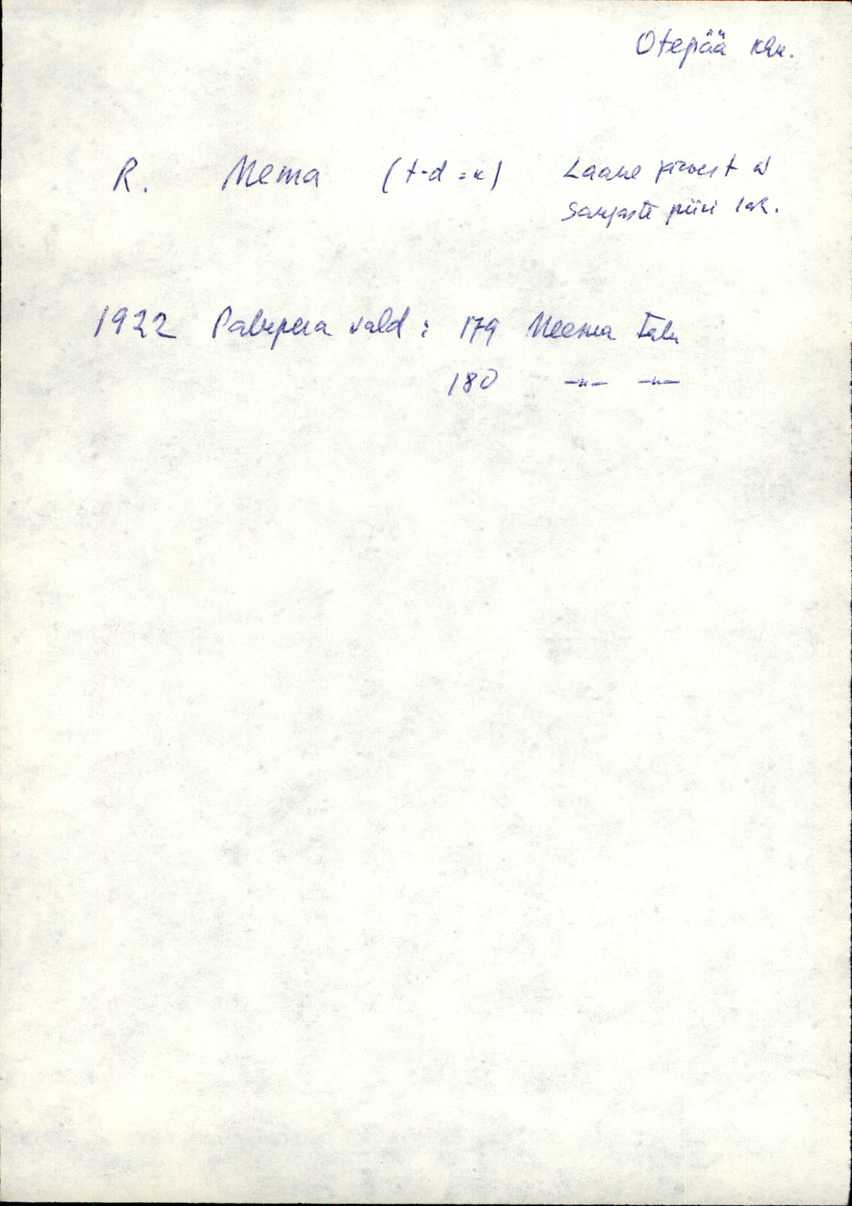 Otepää khk.
R. Nema (t-d=k) Laane järvest W
Sangaste piiri
1922 Palupera vald: 179 Neema Talu
180 -"- -"-